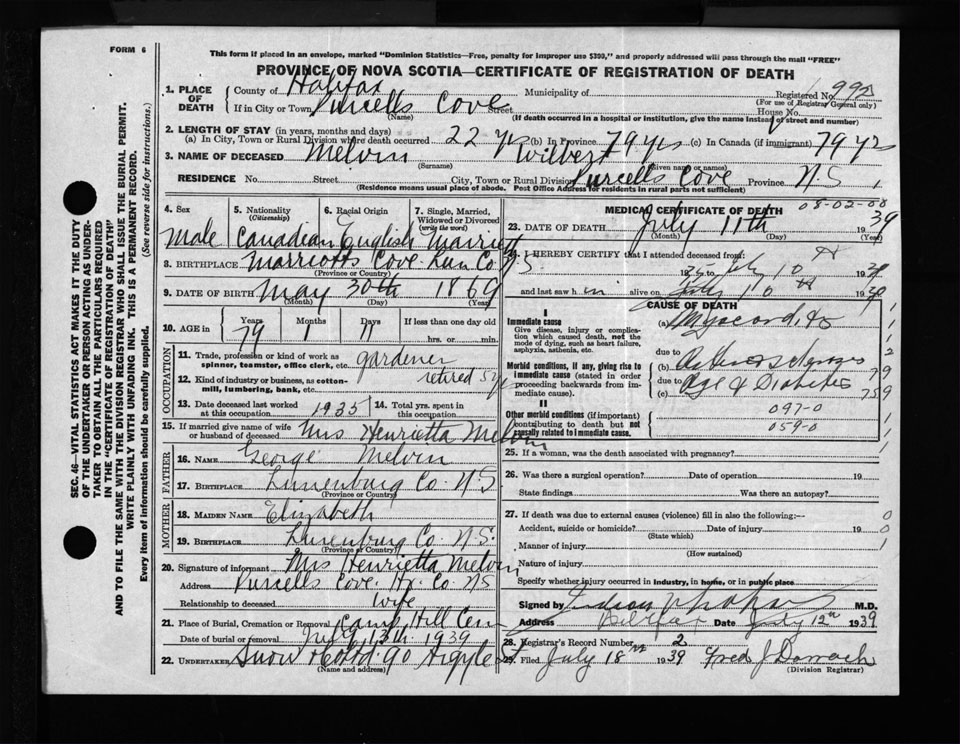 FORM 6
This form if placed in an envelope, marked "Dominion Statistics—Free, penalty for improper use $300," and properly addressed will pass through the mail "FREE"
PROVINCE OF NOVA SCOTIA—CERTIFICATE OF REGISTRATION OF DEATH
1. PLACE OF DEATH
County of Halifax Municipality of Registered No. 990
(For use of Registrar General only)
If in City or Town Purcells Cove Street House No.
(Name) (If death occurred in a hospital or institution, give the name instead of street and number)
2. LENGTH OF STAY (in years, months and days)
(a) In City, Town or Rural Division where death occurred 22 yrs (b) In Province 79 yrs (c) In Canada (if immigrant) 79 yrs
3. NAME OF DECEASED Melvin Wilbert
(Surname) (Given name or names)
RESIDENCE No. Street City, Town or Rural Division Purcells Cove Province N.S 1
(Residence means usual place of abode. Post Office Address for residents in rural parts not sufficient)
4. Sex 5. Nationality (Citizenship) 6. Racial Origin 7. Single, Married, Widowed or Divorced (write the word)
Male Canadian English Married
8. BIRTHPLACE Marriotts Cove Lun. Co. N.S.
(Province or Country)
9. DATE OF BIRTH May 30th 1869
(Month) (Day) (Year)
10. AGE in Years Months Days If less than one day old
79 1 11 hrs. or min.
OCCUPATION
11. Trade, profession or kind of work as spinner, teamster, office clerk, etc. gardener
12. Kind of industry or business, as cotton-mill, lumbering, bank, etc. retired 5 yrs
13. Date deceased last worked at this occupation 1935 14. Total yrs. spent in this occupation
15. If married give name of wife or husband of deceased Mrs Henrietta Melvin
FATHER
16. NAME George Melvin
17. BIRTHPLACE Lunenburg Co. N.S
(Province or Country)
MOTHER
18. MAIDEN NAME Elizabeth
19. BIRTHPLACE Lunenburg Co. N.S.
(Province or Country)
20. Signature of informant Mrs Henrietta Melvin
Address Purcells Cove. Hx. Co. NS
Relationship to deceased wife
21. Place of Burial, Cremation or Removal Camp Hill Cem
Date of burial or removal July 13th 1939
22. UNDERTAKER Snow & Co Ltd. 90 Argyle St
(Name and address)
MEDICAL CERTIFICATE OF DEATH
08-02-00
23. DATE OF DEATH July 11th 1939
(Month) (Day) (Year)
24. I HEREBY CERTIFY that I attended deceased from:
July 10th 1939
and last saw h im alive on July 10th 1939
CAUSE OF DEATH
I
Immediate cause
Give disease, injury or complication which caused death, not the mode of dying, such as heart failure, asphyxia, asthenia, etc.
(a) Myocarditis
due to
Morbid conditions, if any, giving rise to immediate cause (stated in order proceeding backwards from immediate cause).
(b) Arteriosclerosis
due to
(c) Age & Diabetes
II
Other morbid conditions (if important) contributing to death but not causally related to immediate cause.
097-0
059-0
25. If a woman, was the death associated with pregnancy?
26. Was there a surgical operation? Date of operation 19
State findings Was there an autopsy?
27. If death was due to external causes (violence) fill in also the following:—
Accident, suicide or homicide? Date of injury 19
(State which)
Manner of injury
(How sustained)
Nature of injury
Specify whether injury occurred in industry, in home, or in public place
Signed by M.D.
Address Halifax Date July 12th 1939
28. Registrar's Record Number 2
29. Filed July 18th 1939 Fred J Darrach
(Division Registrar)
SEC. 46—VITAL STATISTICS ACT MAKES IT THE DUTY
OF THE UNDERTAKER OR PERSON ACTING AS UNDER-
TAKER TO OBTAIN ALL THE PARTICULARS REQUIRED
IN THE "CERTIFICATE OF REGISTRATION OF DEATH"
AND TO FILE THE SAME WITH THE DIVISION REGISTRAR WHO SHALL ISSUE THE BURIAL PERMIT.
WRITE PLAINLY WITH UNFADING INK. THIS IS A PERMANENT RECORD.
Every item of information should be carefully supplied. (See reverse side for instructions.)